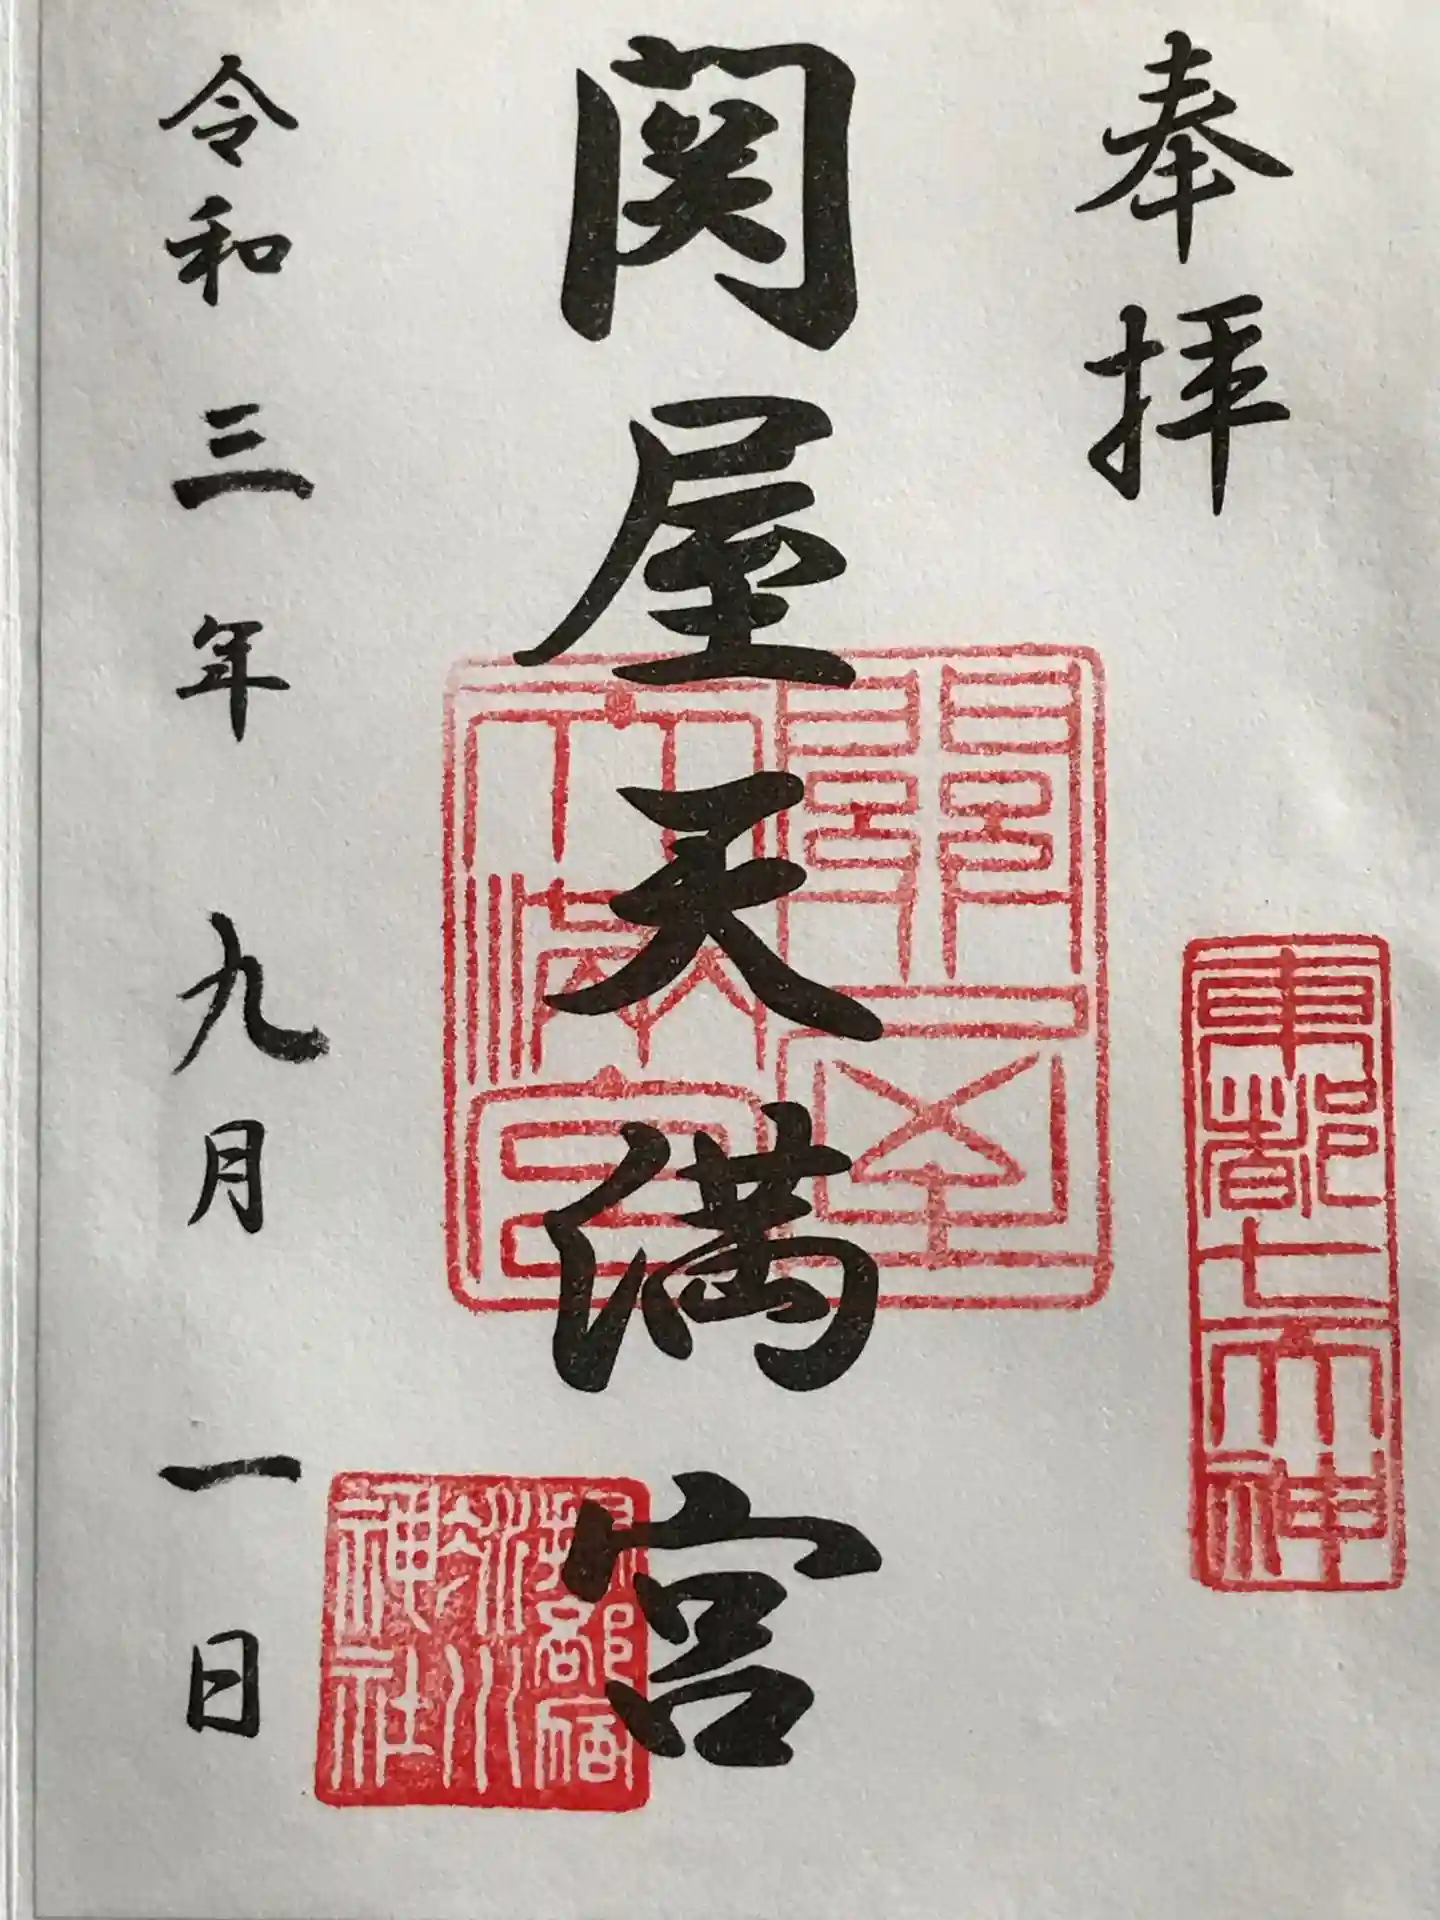 奉拝
東都七天神
関屋天満宮
關屋
天満宮
令和三年九月一日